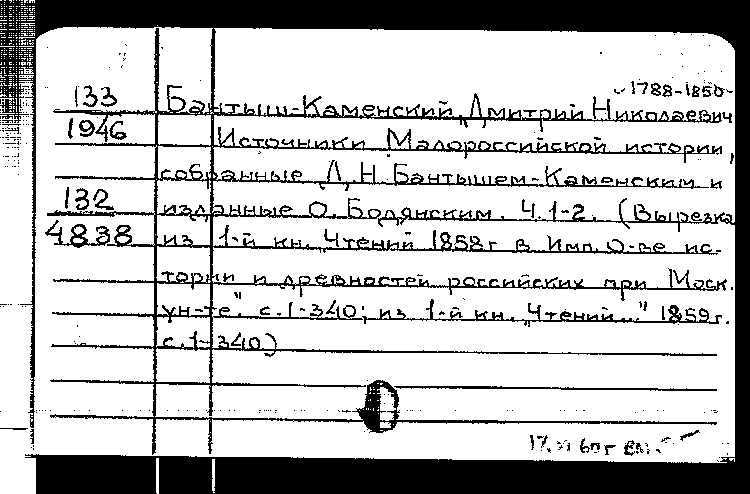 1788-1850
133 Бантыш-Каменский, Дмитрий Николаевич
1946 Источники Малороссийской истории,
собранные Д.Н. Бантышем-Каменским и
132 изданные О. Бодянским. Ч.1-2. (Вырезка
4838 из 1-й кн. "Чтений 1858г в Имп. О-ве ис-
тории и древностей российских при Моск.
ун-те". с.1-340; из 1-й кн. "Чтений..." 1859г.
с.1-340)
17. 60г